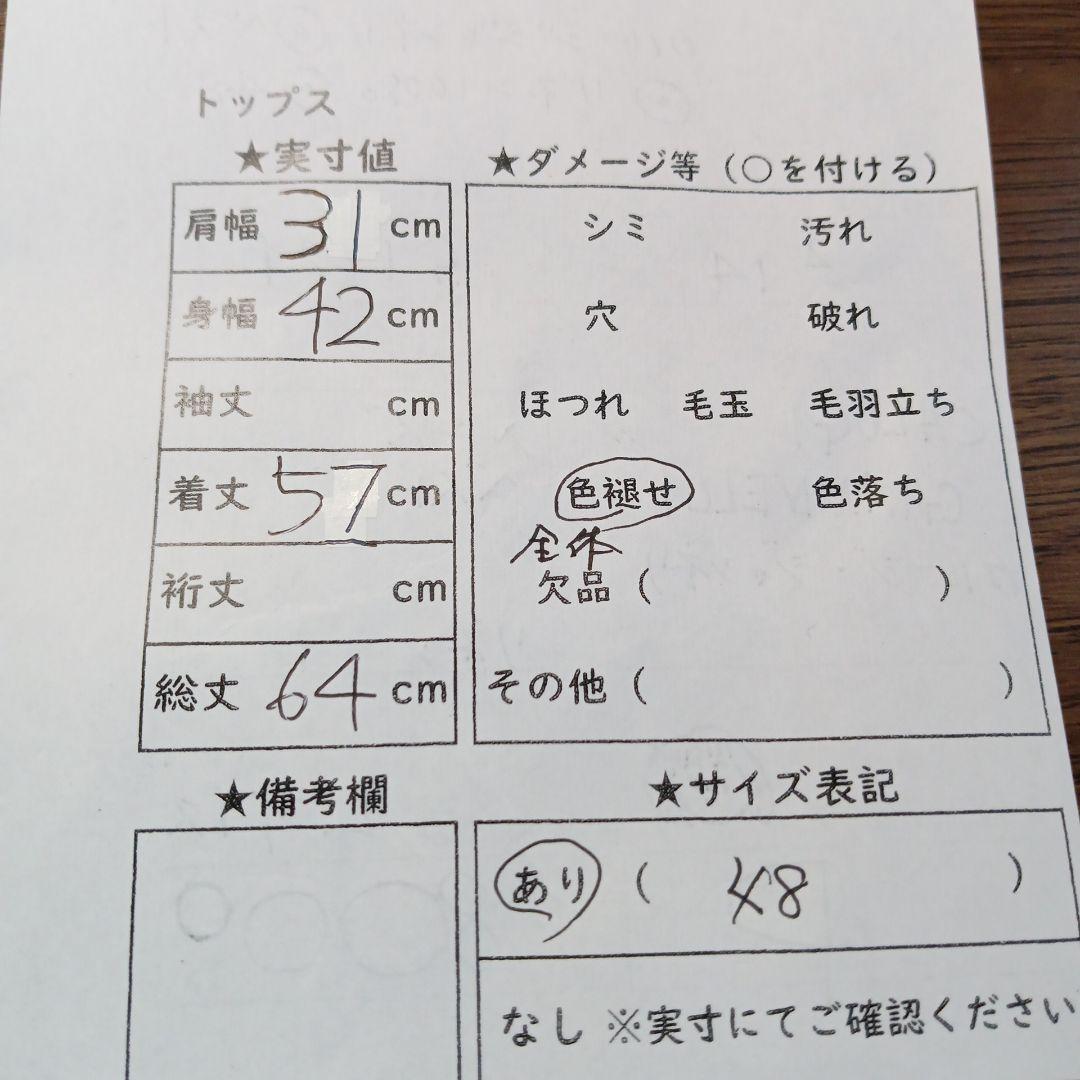 トップス
★実寸値
肩幅 31 cm
身幅 42 cm
袖丈 cm
着丈 57 cm
裄丈 cm
総丈 64 cm
★ダメージ等（○を付ける）
シミ 汚れ
穴 破れ
ほつれ 毛玉 毛羽立ち
色褪せ 色落ち
全体
欠品（ ）
その他（ ）
★備考欄
★サイズ表記
あり（ 48 ）
なし ※実寸にてご確認ください